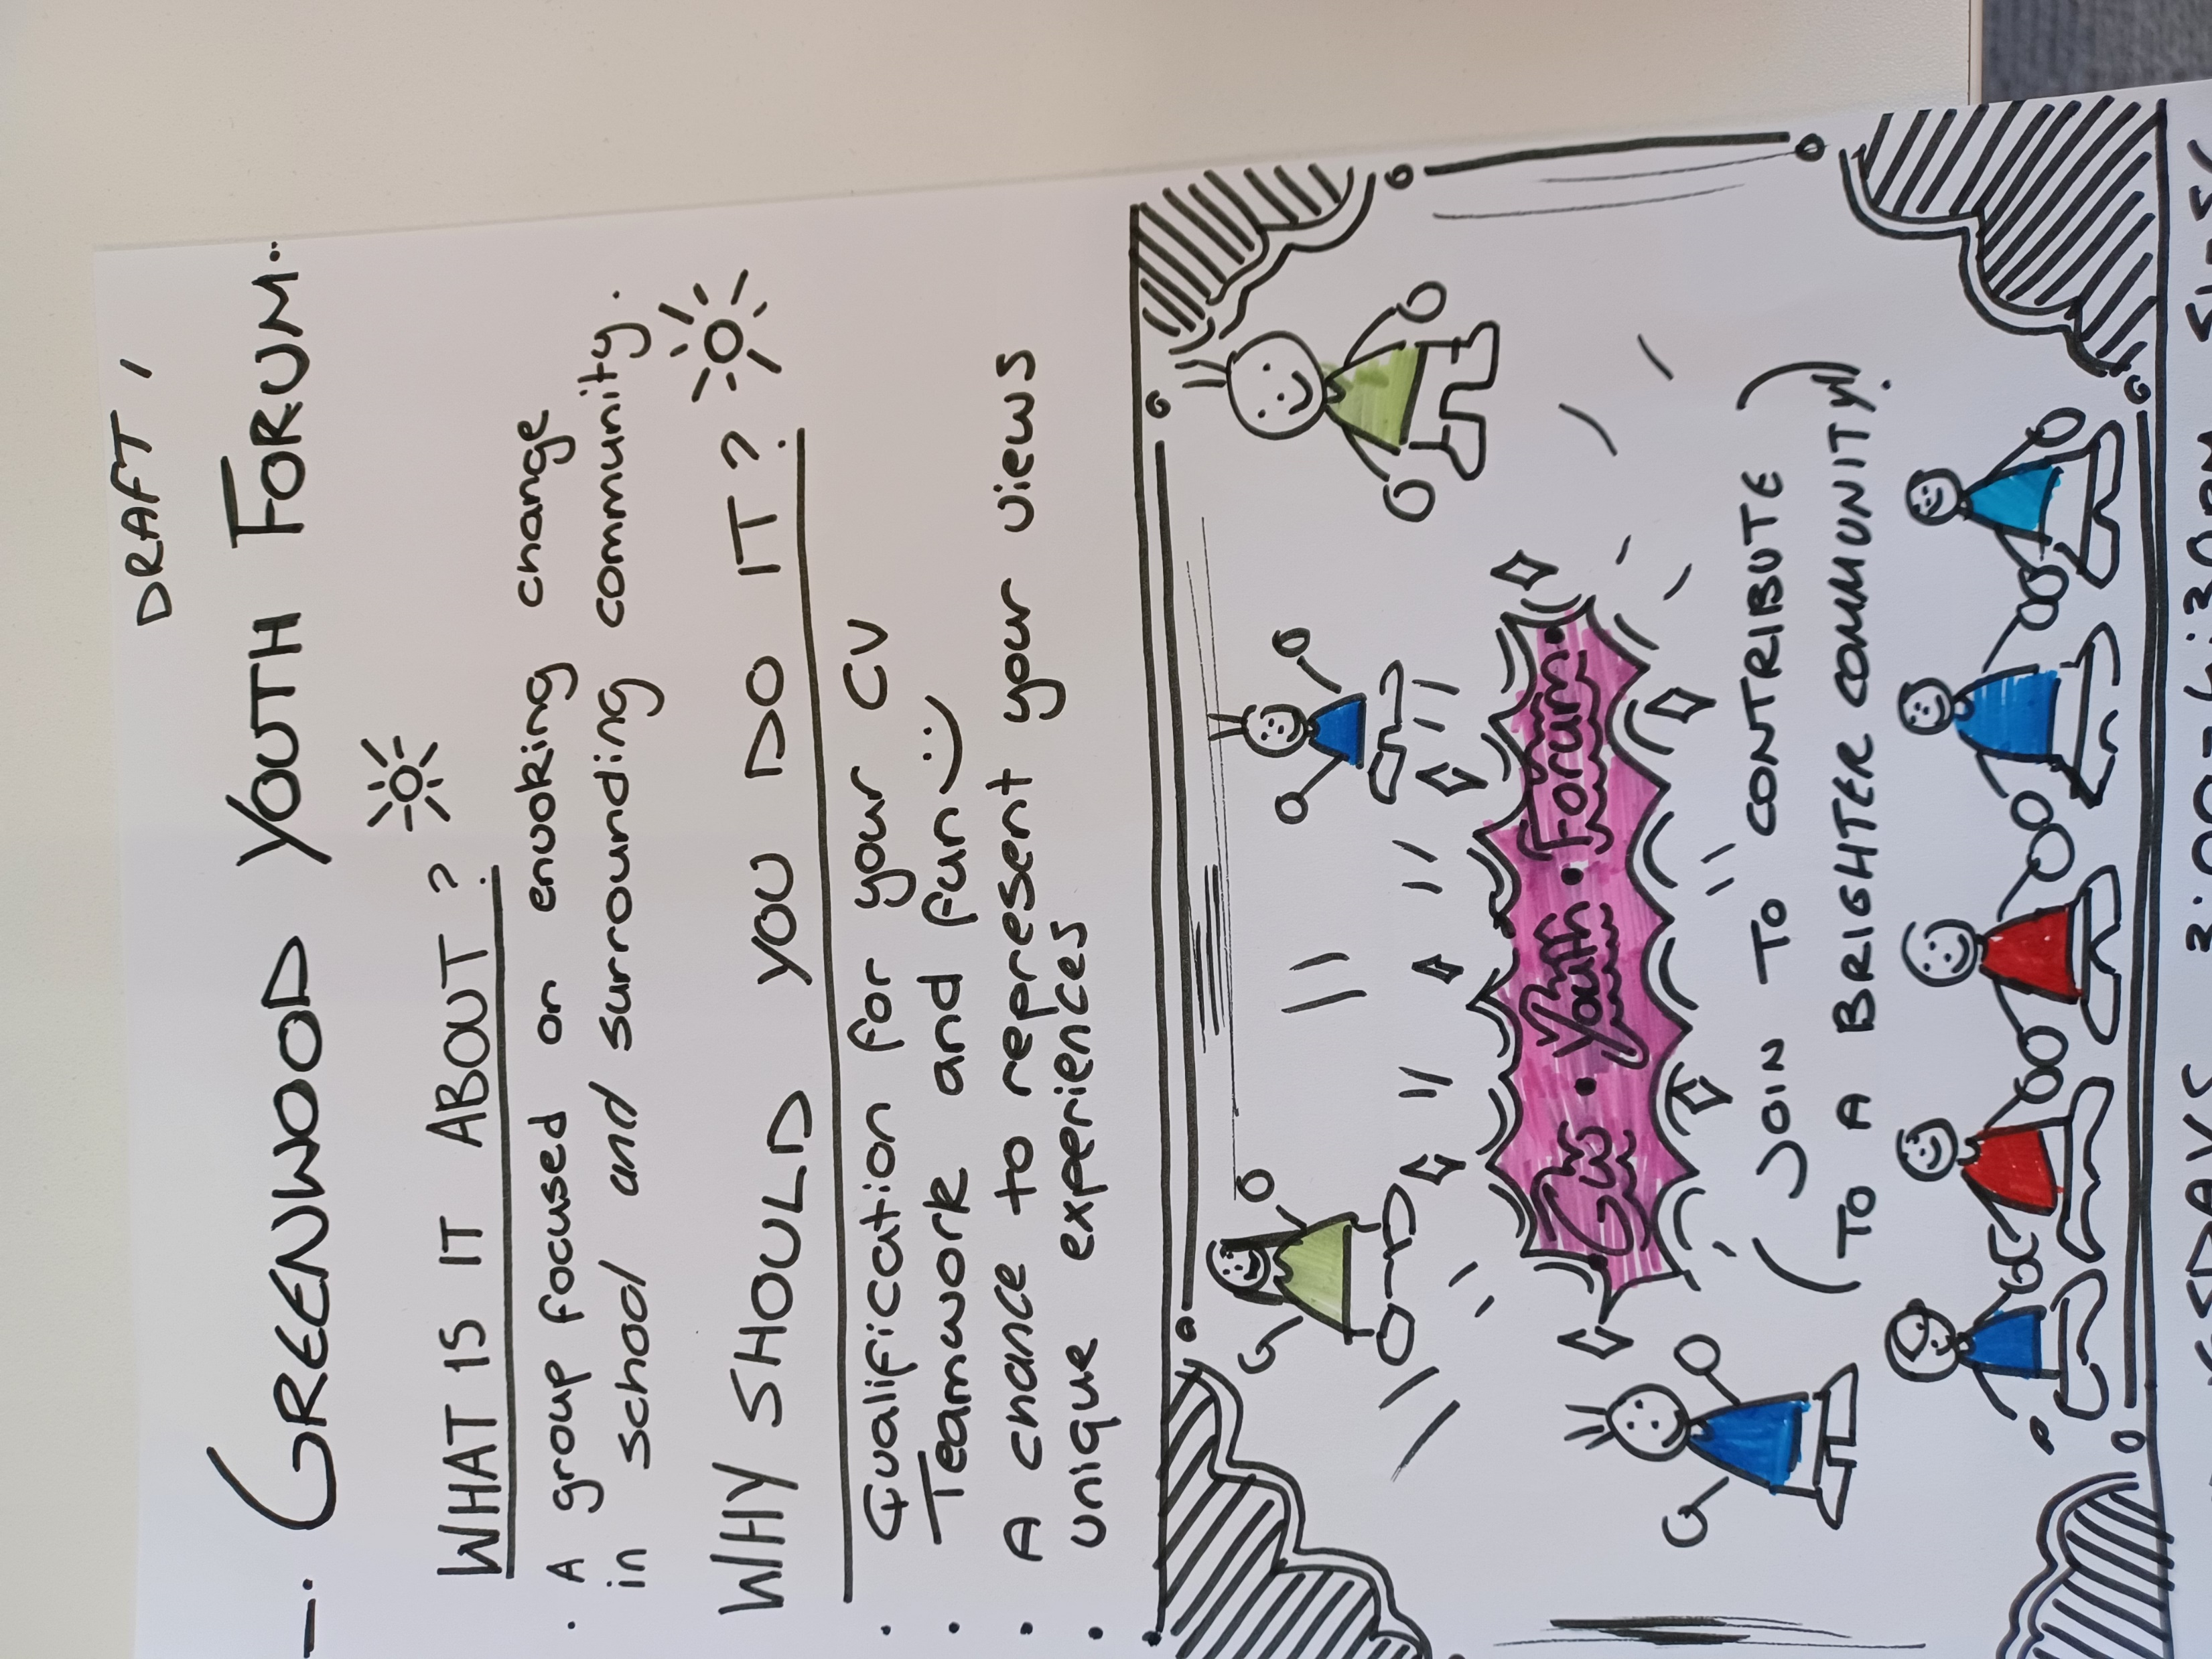 DRAFT 1
GREENWOOD YOUTH FORUM
WHAT IS IT ABOUT?
· A group focused on envoking change
in school and surrounding community.
WHY SHOULD YOU DO IT?
· Qualification for your CV
· Teamwork and fun :)
· A chance to represent your views
· unique experiences
GW • Youth • Forum •
(JOIN TO CONTRIBUTE)
(TO A BRIGHTER COMMUNITY!)